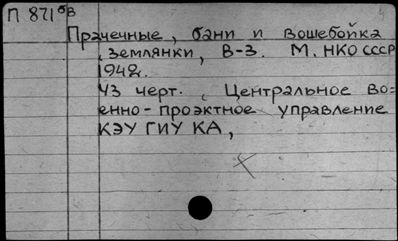 П 871бв
Прачечные, бани и вошебойка
землянки, В-3. М. НКО СССР
1942.
43 черт. Центральное во-
енно-проэктное управление
КЭУ ГИУ КА,